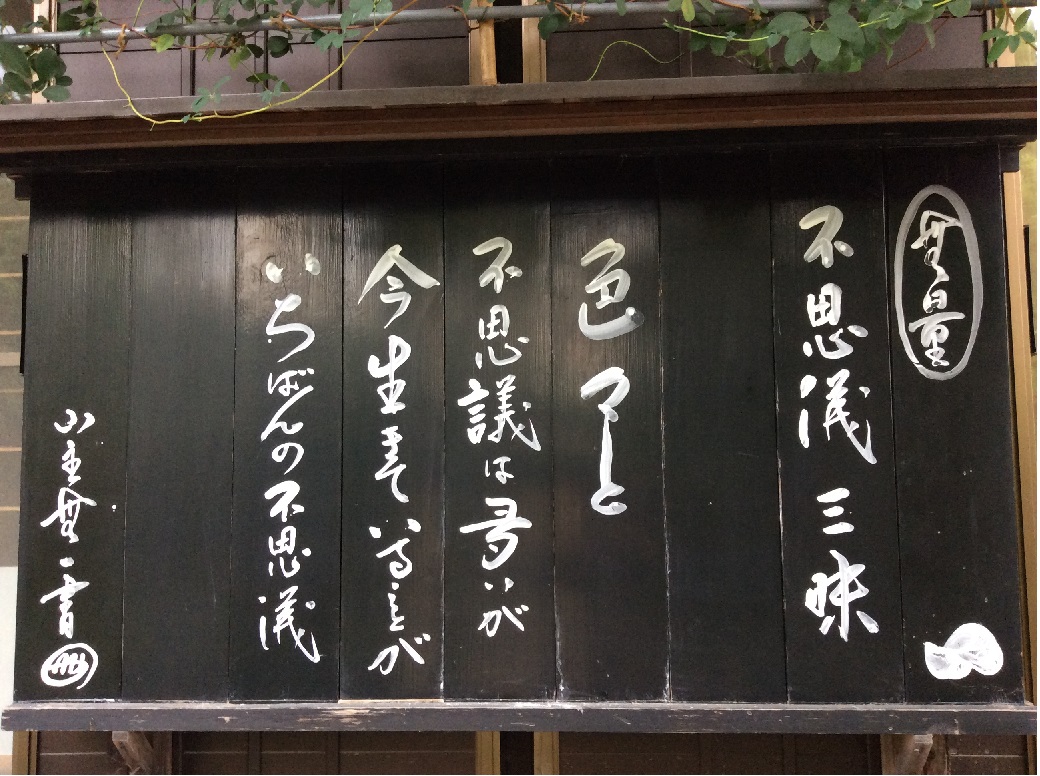 無量
不思議 三昧
色々と
不思議は多いが
今生きていることが
いちばんの不思議
山主無一書